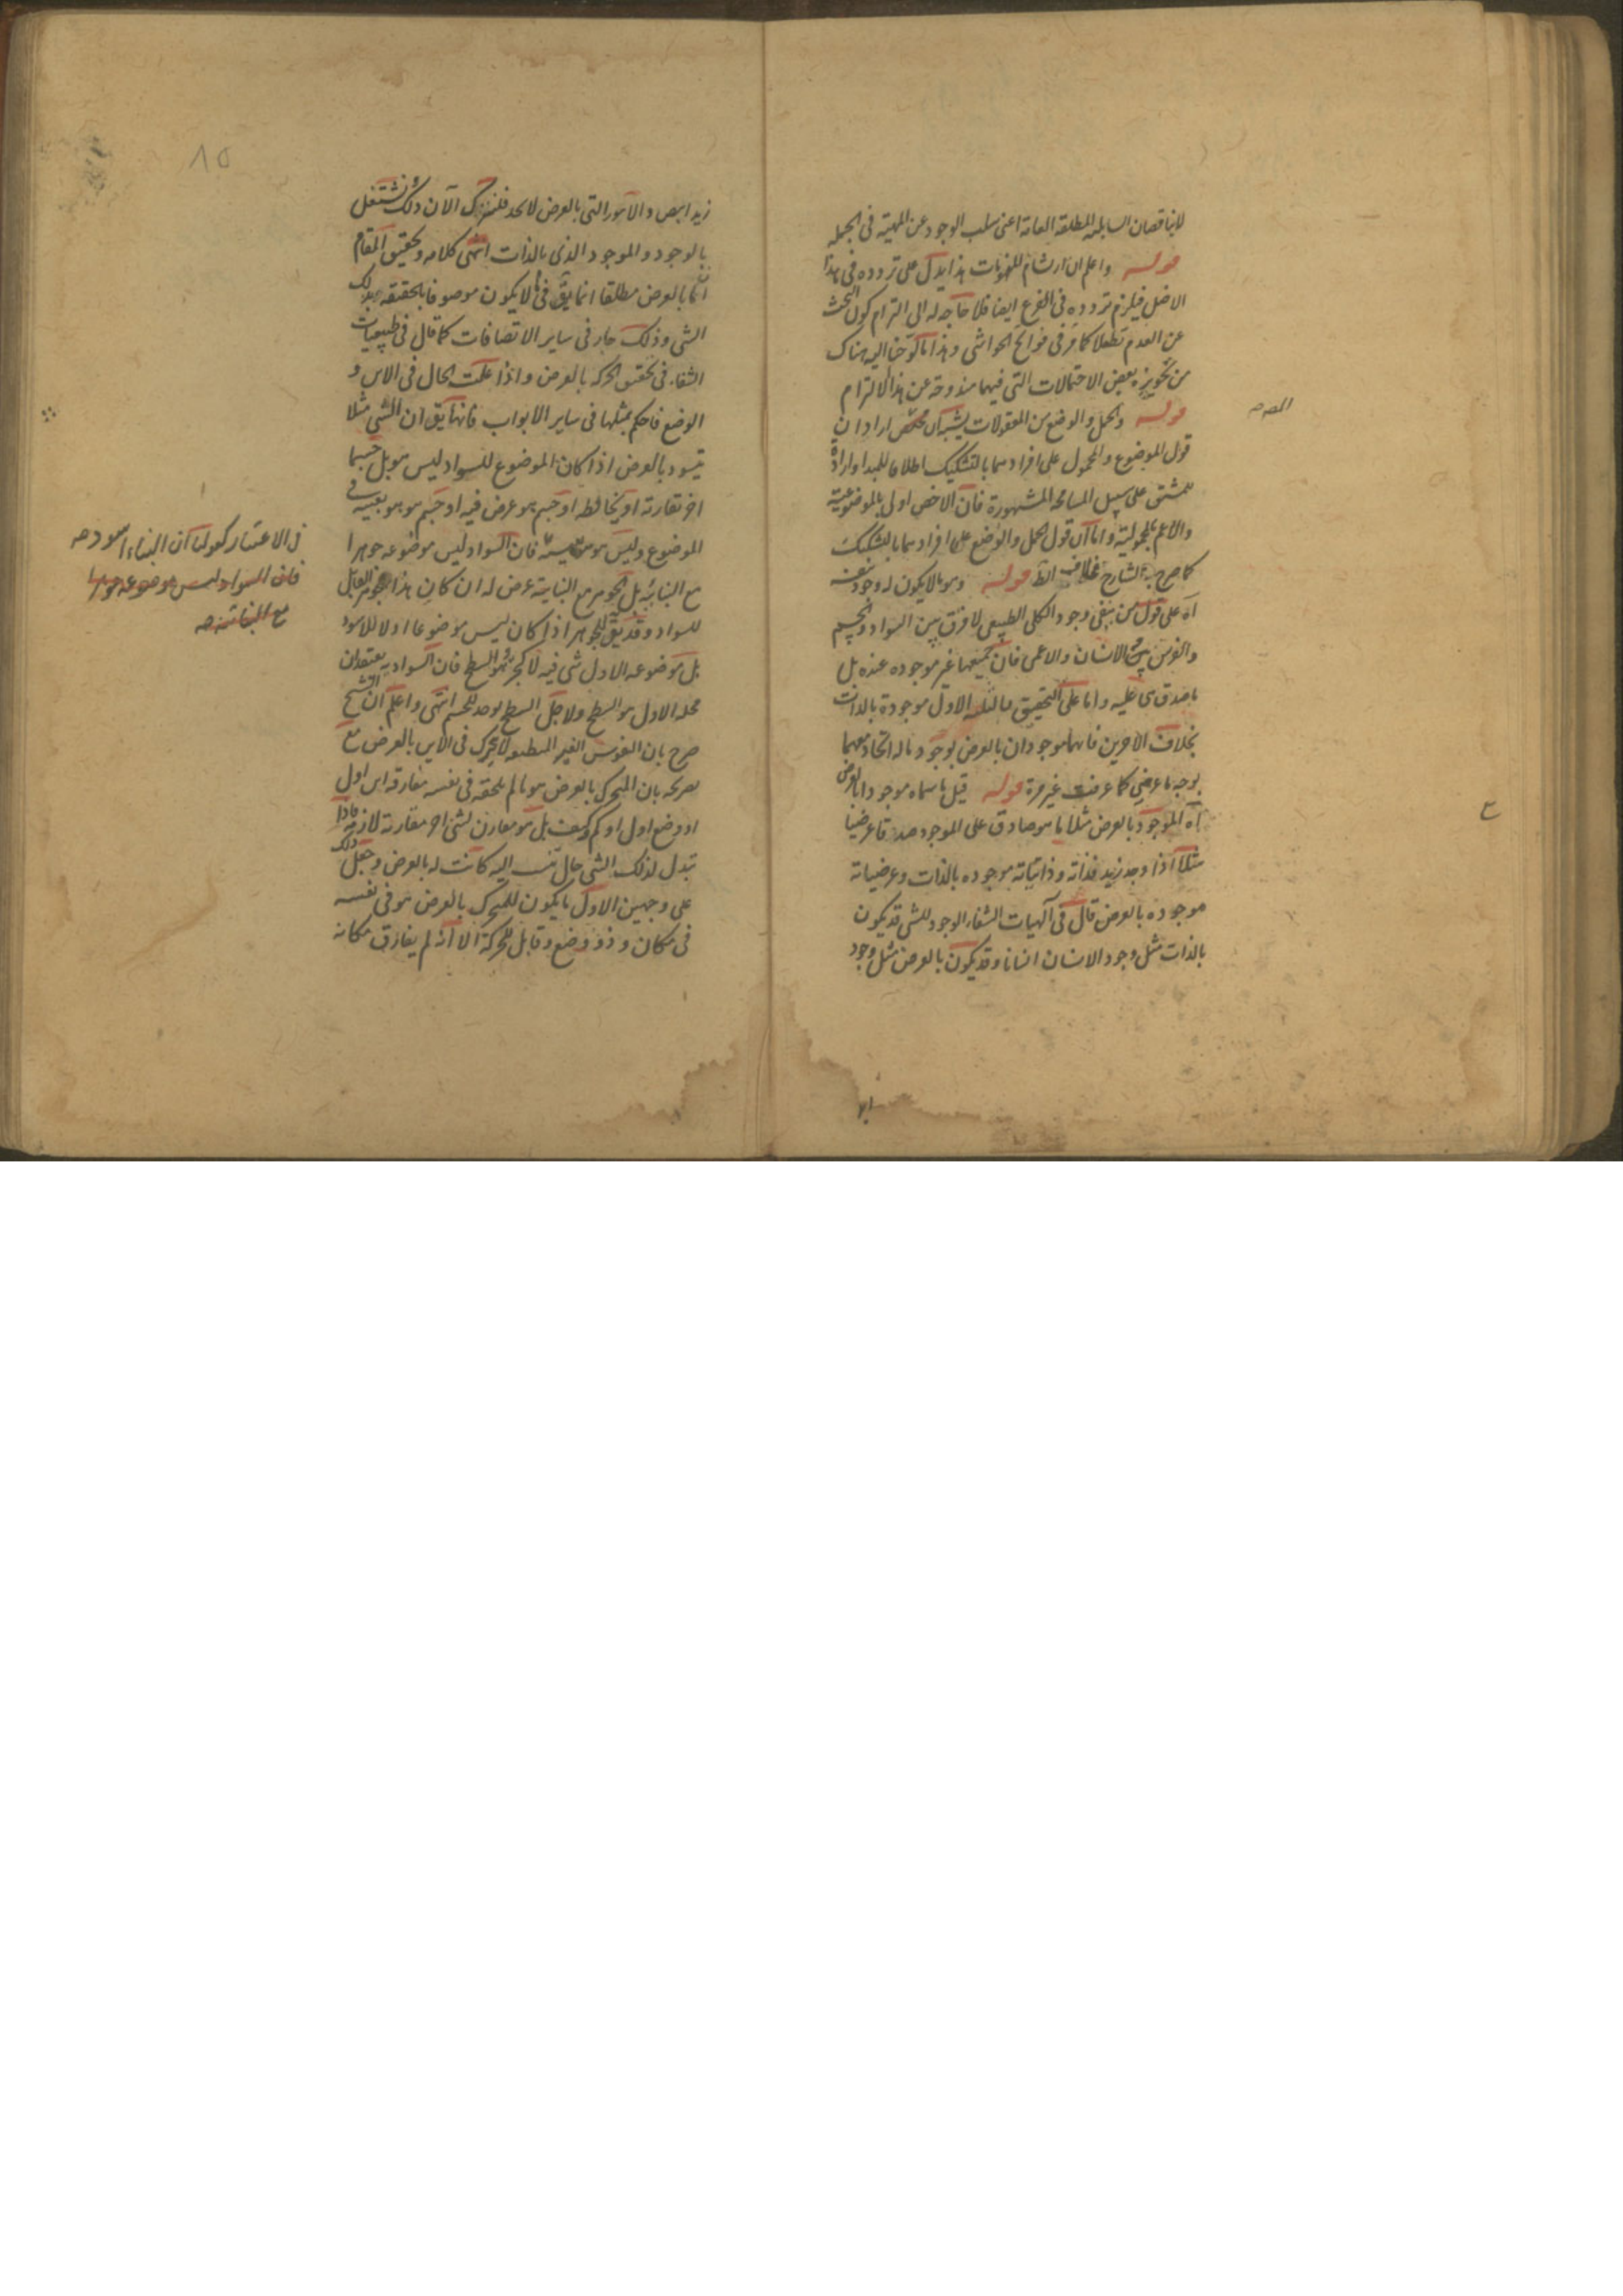 لاينا قصان السابله المطلقه العامة اعنى سلب الوجود عن المهية فى الجمله
قوله واعلم ان ارتسام للهويات هذا يدل على تردده فى هذا
الاصل فيلزم تردده فى الفرع ايضا فلا حاجه له الى التزام كون البحث
عن العدم تطفلا كما مر فى فواتح الحواشى وهذا ما لوحنا اليه هناك
من تجويزه بعض الاحتمالات التى فيها مندوحة عن هذا الالتزام
قوله والحمل والوضع من المعقولات اراد ان
قول الموضوع والمحمول على افرادهما بالتشكيك اطلاقا للمبدا وارادة
للمشتق على سبيل المسامحه المشهورة فان الاخص اولى بالموضوعية
والاعم بالمحمولية واما ان قول الحمل والوضع على افرادهما بالتشكيك
كما صرح به الشارح فخلاف الظ قوله وهو ما لا يكون له وجود بنفسه
آه على قول من ينفى وجود الكلى الطبيعى لا فرق بين السواد والجسم
والفرس وبين الانسان والاعمى فان جميعها غير موجوده عنده بل
ما صدق هى عليه واما على التحقيق فالثلثه الاول موجودة بالذات
بخلاف الاخرين فانهما موجودان بالعرض بوجود ما له اتحاد معهما
بوجه ما عرضى كما عرفت غير مرة قوله قيل ما سماه موجودا بالعرض
آه الموجود بالعرض مثلا ما هو صادق على الموجود صدقا عرضيا
مثلا اذا وجد زيد فذاته وذاتياته موجوده بالذات وعرضياته
موجوده بالعرض قال فى الهيات الشفاء الوجود للشى قد يكون
بالذات مثل وجود الانسان انسانا وقد يكون بالعرض مثل وجود
زيد ابيض والامور التى بالعرض لا تحد فلنترك الآن ذلك ولنشتغل
بالوجود والموجود الذى بالذات انتهى كلامه وتحقيق المقام
ان ما بالعرض مطلقا انما يق فى ما لا يكون موصوفا بالحقيقه بذلك
الشى وذلك جار فى ساير الاتصافات كما قال فى طبيعيات
الشفاء فى تحقيق الحركه بالعرض واذا علمت الحال فى الاين و
الوضع فاحكم بمثلها فى ساير الابواب فانها يق ان الشى مثلا
تيسود بالعرض اذا كان الموضوع للسواد ليس هو بل جسما
اخر تقارنه او يخالطه او جسم هو عرض فيه او جسم هو هو بعينه فى
الموضوع وليس هو هو فان السواد ليس موضوعه جوهرا
مع البنائيه بل الجوهر مع البنايية عرض له ان كان هذا الجوهر القابل
للسواد وقد يق للجوهر اذا كان ليس موضوعا اولا للاسود
بل موضوعه الاول شى فيه لا كجزئه وهو السطح فان السواد يعتقد ان
محله الاول هو السطح ولاجل السطح يوجد للجسم انتهى واعلم ان الشيخ
صرح بان النفوس الغير المنطبعه لا تتحرك فى الاين بالعرض مع
تصريحه بان المتحرك بالعرض هو ما لم يلحقه فى نفسه مفارقة اين اول
او وضع اول او كم وكيف بل هو مقارن لشى اخر مقارنة لازمة فاذا
تبدل لذلك الشى حال تنسب اليه كانت له بالعرض وجعل ذلك
على وجهين الاول ما يكون للمتحرك بالعرض هو فى نفسه
فى مكان وذو وضع وقابل للحركة الا انه لم يفارق مكانه
فى الاعتبار كقولنا ان البناء اسود صح
فان السواد ليس موضوعه جوهرا
مع البنائية صح